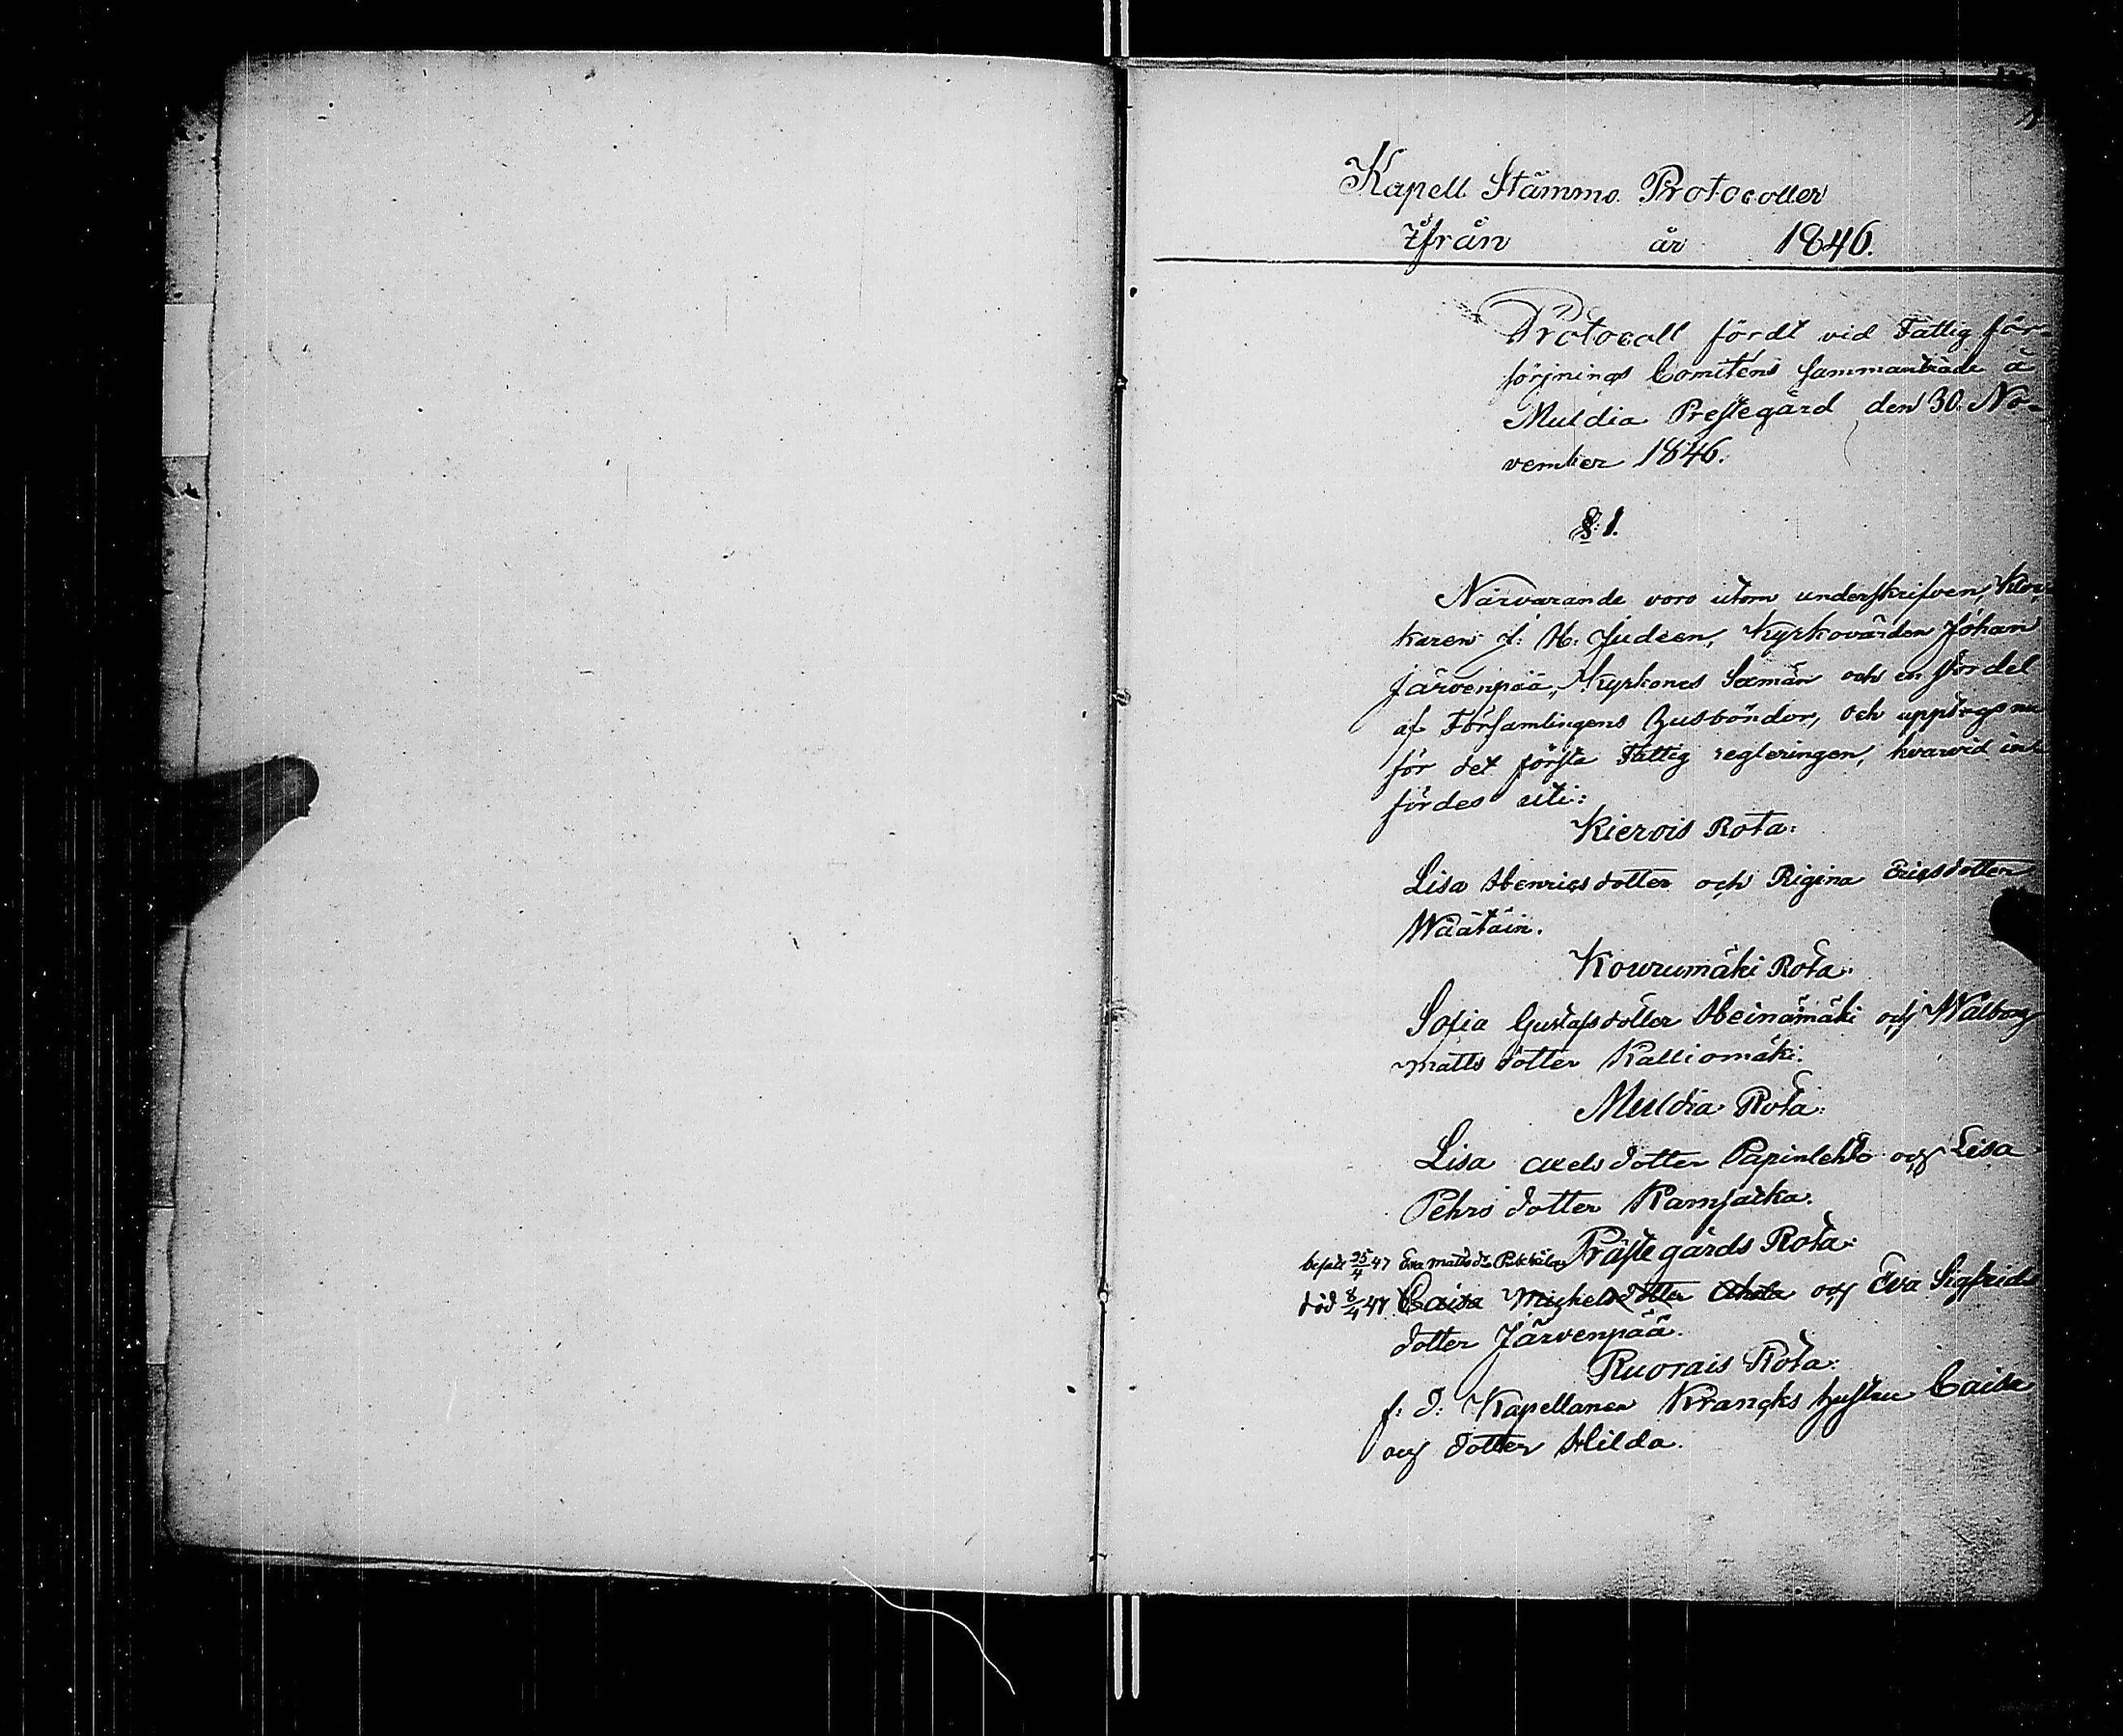 Kapell Stämmo Protocoller
Ifrån år 1846.
Protocoll fördt vid Fattig för-
sörjnings Comiténs sammanträde å
Muldia Prestegård den 30 No-
vember 1846.
§: 1.
Närvarande voro utom underskrifven, Kloc-
karen J: H: Judeen, Kyrkovärden Johan
Järvenpää, Kyrkones Sexmän och en stor del
af Församlingens Husbönder, och upptogs nu
för det första Fattig regleringen, hvarvid in-
fördes uti:
Kierois Rota:
Lisa Henricsdotter och Rigina Ericsdotter
Wäätäin.
Kourumäki Rota:
Sofia Gustafsdotter Heinämäki och Walborg
Matts dotter Kalliomäki.
Muldia Rota:
Lisa Axels dotter Papinlehto och Lisa
Pehrs dotter Kamsatka.
Prästegårds Rota:
25/4 47 Eva Matts dr
död 8/4 47 Caisa Michelsdotter Ahola och Eva Sigfrids
dotter Järvenpää.
Ruorais Rota:
f: d: Kapellanen Krancks hustru Caisa
och dotter Hilda.